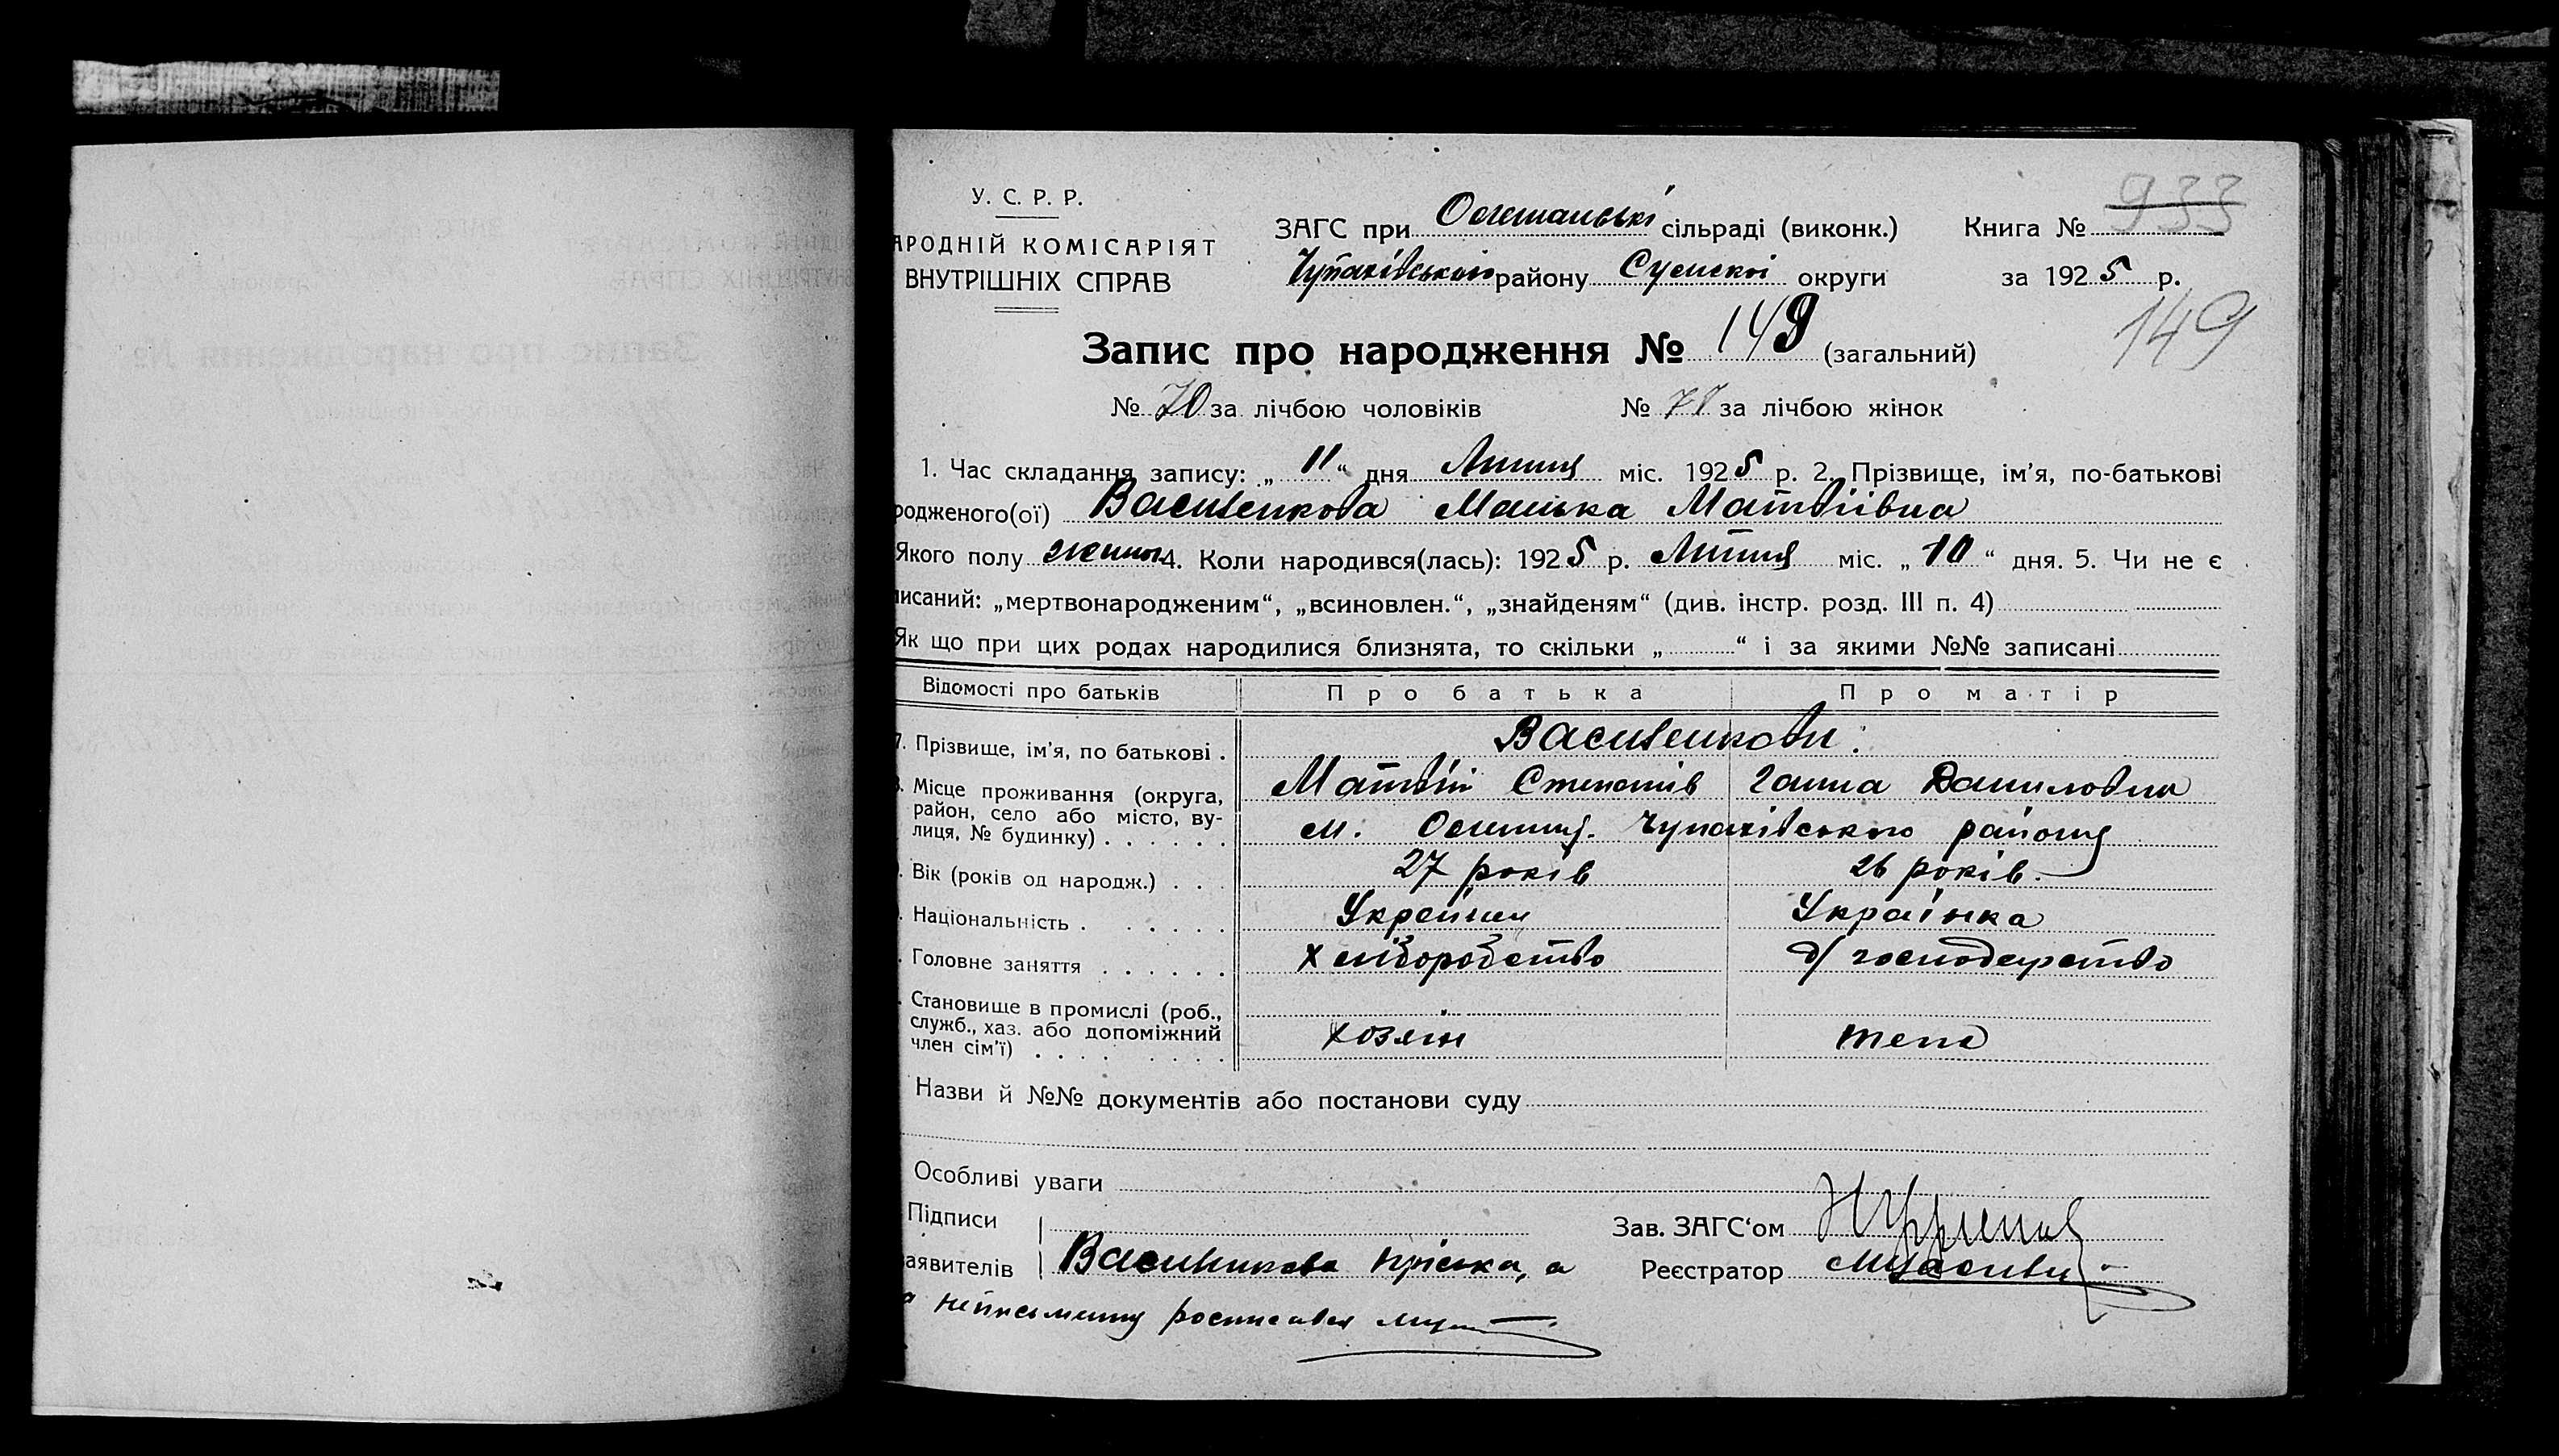 У. С. Р. Р.
АРОДНІЙ КОМІСАРІЯТ
ВНУТРІШНІХ СПРАВ
ЗАГС при сільраді (виконк.) Книга № 933
Чупахівського району Сумскої округи за 1925 р.
149
Запис про народження № 149 (загальний)
№ 70 за лічбою чоловіків № за лічбою жінок
1. Час складання запису: „11“ дня Липця міс. 1925 р. 2. Прізвище, ім'я, по-батькові
родженого(ої) Василенкова Матвіївна
Якого полу 4. Коли народився(лась): 1925 р. Липця міс. „10“ дня. 5. Чи не є
писаний: „мертвонародженим“, „всиновлен.“, „знайденям“ (див. інстр. розд. III п. 4)
Як що при цих родах народилися близнята, то скільки „ “ і за якими №№ записані
Відомості про батьків Про батька Про матір
7. Прізвище, ім'я, по батькові . Василенкови.
Матвій Степанів Ганна Даниловна
Місце проживання (округа, район, село або місто, ву-
лиця, № будинку) . . . . . . м. Олешня. Чупахівського району
Вік (років од народж.) . . . 27 років 26 років.
Національність . . . . . Українец Українка
Головне заняття . . . . . . Хліборобство д/господарство
Становище в промислі (роб.,
служб., хаз. або допоміжний
член сім'ї) . . . . . . . . хозяін
Назви й №№ документів або постанови суду
Особливі уваги
Підписи Зав. ЗАГС‘ом
аявителів Василенкова Пріська, а Реєстратор
неписьменну росписався